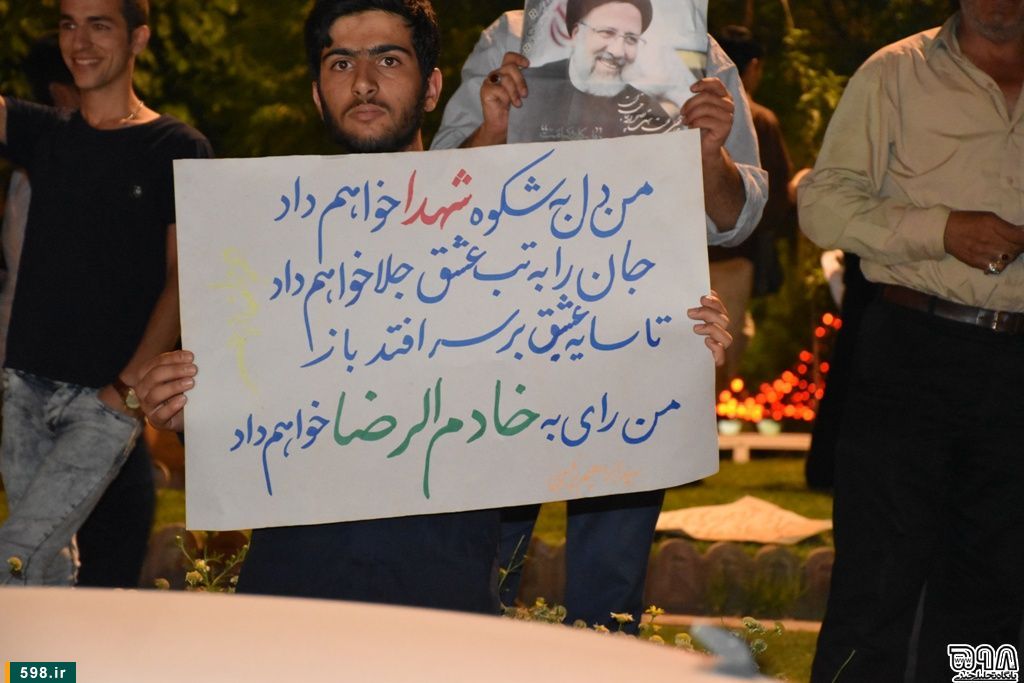 من دل به شکوه شهدا خواهم داد
جان را به تب عشق جلا خواهم داد
تا سایه عشق بر سر افتد باز
من رای به خادم الرضا خواهم داد
598.ir